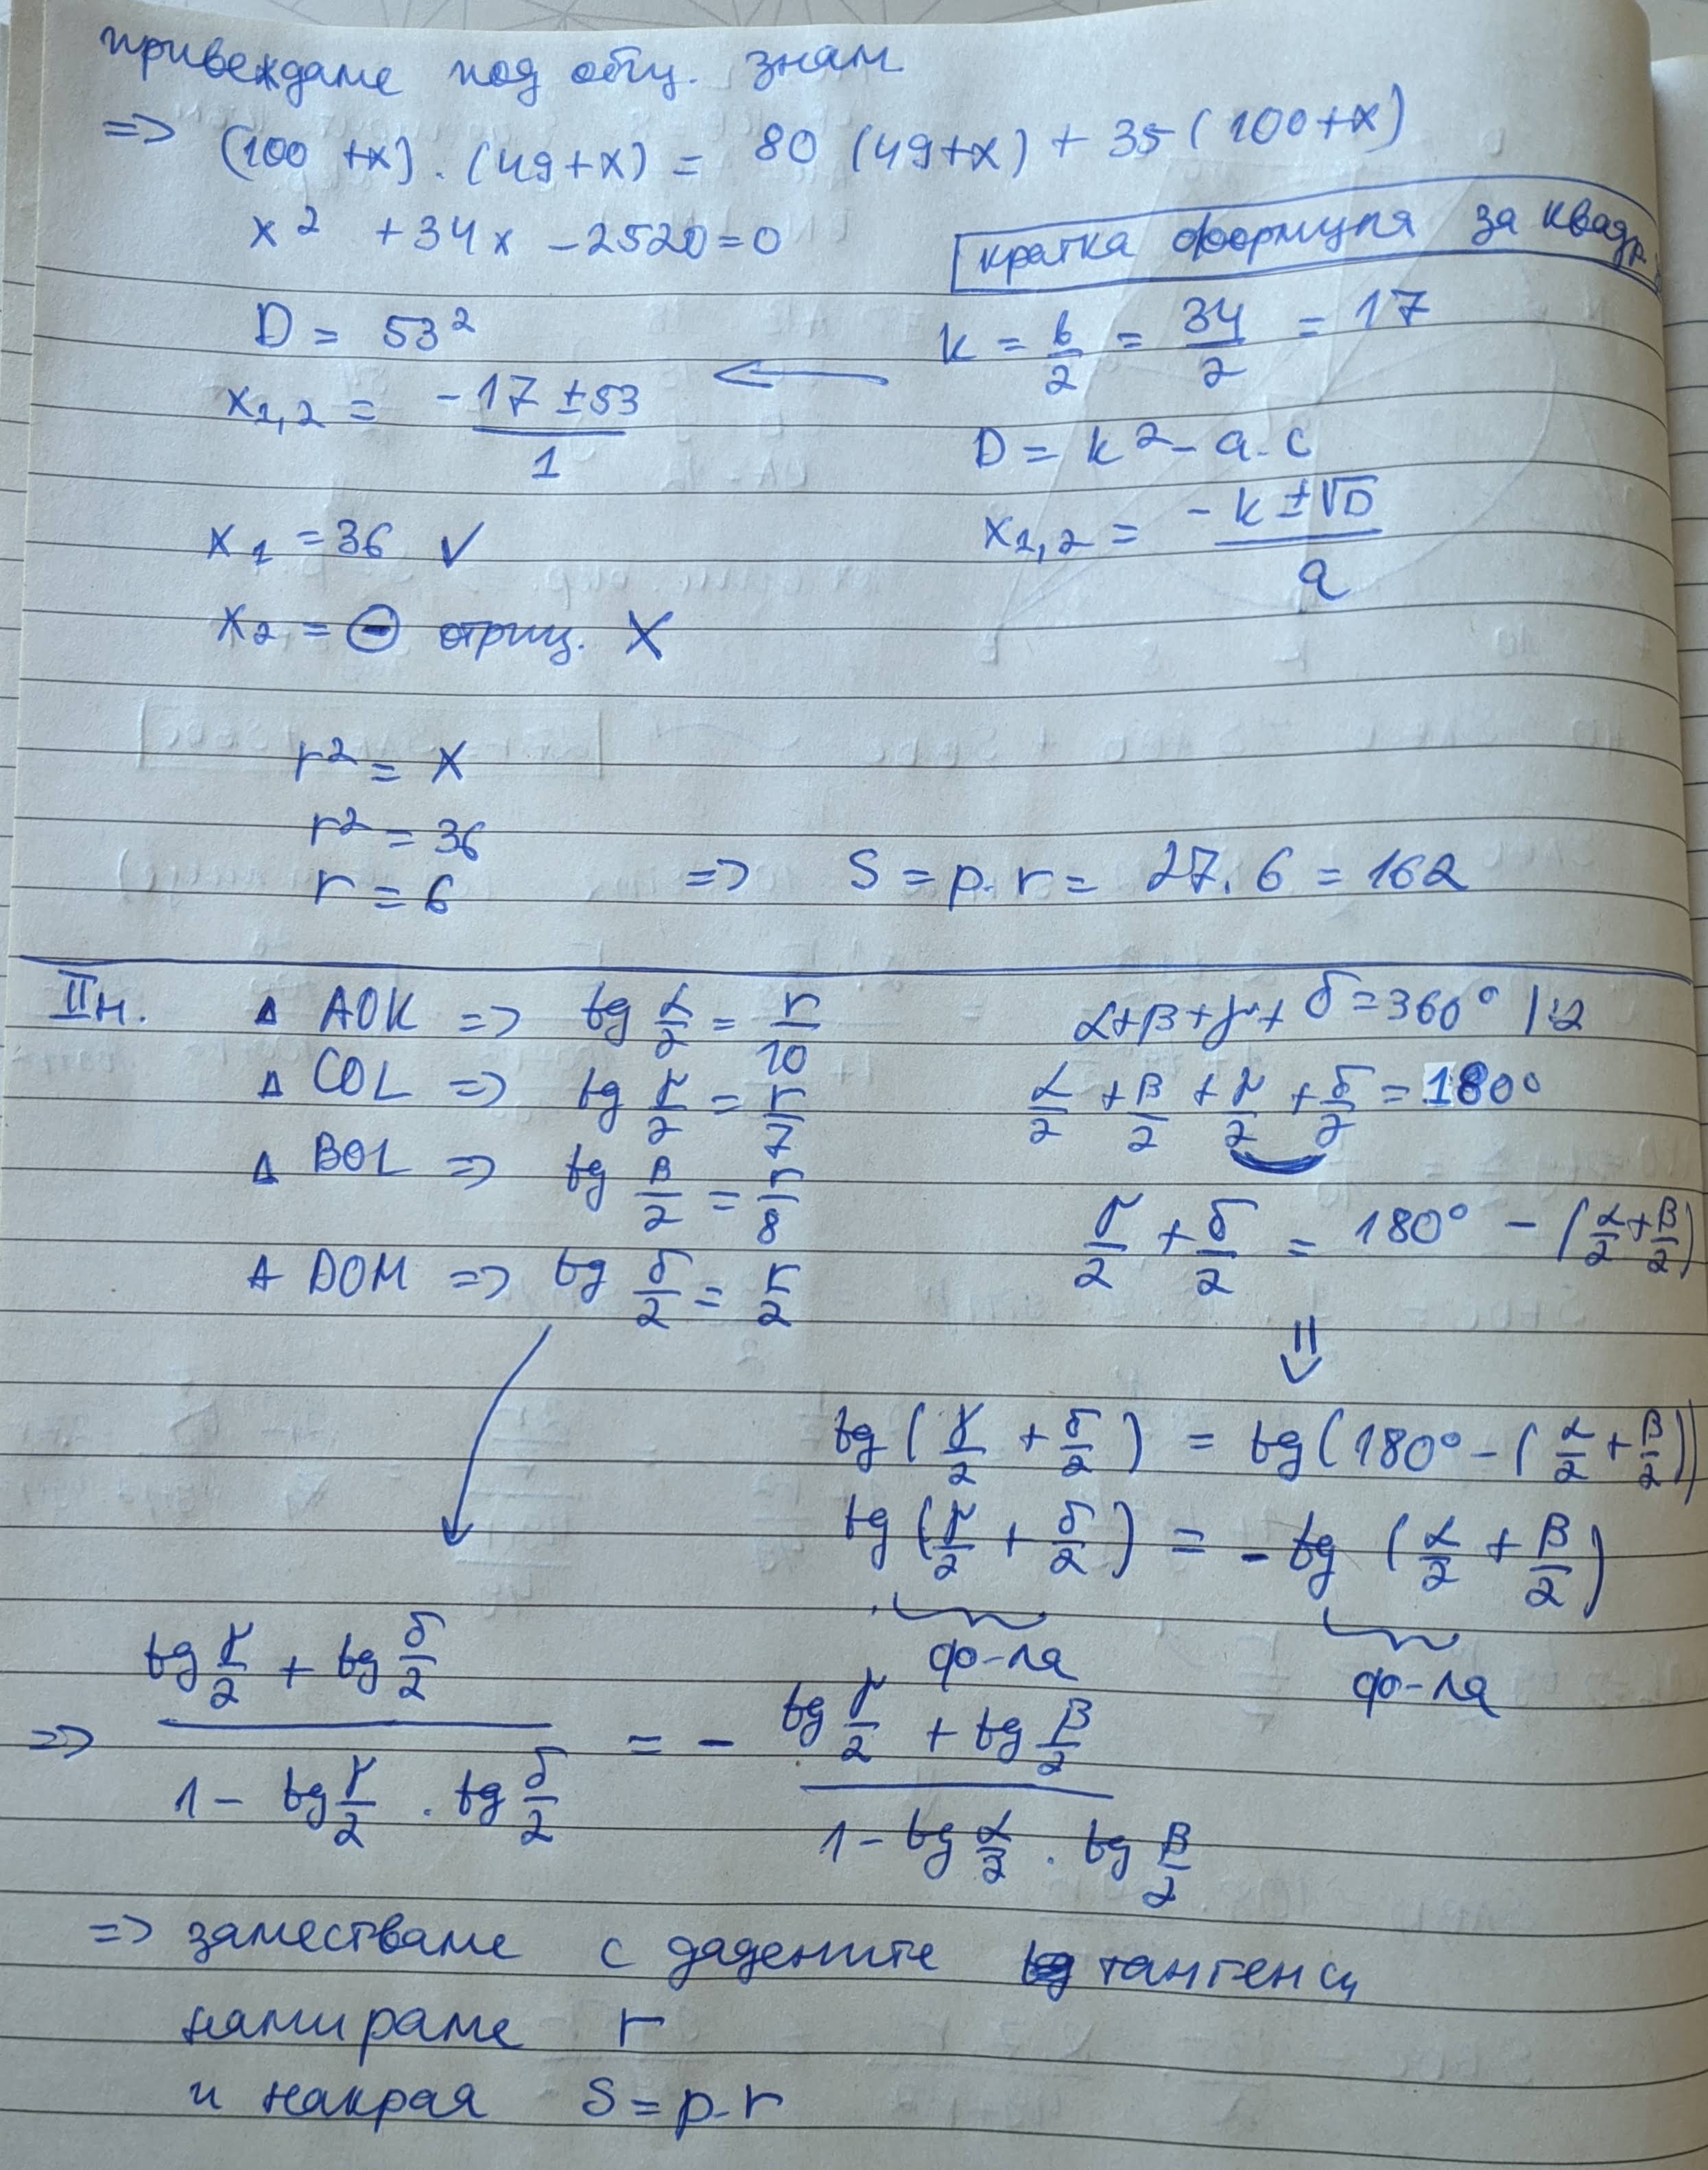 привеждаме под общ. знам
=> (100 + x) . (49 + x) = 80 (49 + x) + 35 (100 + x)
x² + 34x - 2520 = 0
кратка формула за квадр.
D = 53²
k = b/2 = 34/2 = 17
x₁,₂ = (-17 ± 53)/1 ←
D = k² - a.c
x₁,₂ = (-k ± √D)/a
x₁ = 36 ✓
x₂ = ⊖ отриц. X
r² = x
r² = 36
r = 6 => S = p.r = 27.6 = 162
II н. Δ AOK => tg α/2 = r/10
Δ COL => tg γ/2 = r/7
Δ BOL => tg β/2 = r/8
Δ DOM => tg δ/2 = r/2
α + β + γ + δ = 360° |:2
α/2 + β/2 + γ/2 + δ/2 = 180°
γ/2 + δ/2 = 180° - (α/2 + β/2)
⇓
tg (γ/2 + δ/2) = tg (180° - (α/2 + β/2))
tg (γ/2 + δ/2) = - tg (α/2 + β/2)
ф-ла ф-ла
=> (tg γ/2 + tg δ/2)/(1 - tg γ/2 . tg δ/2) = - (tg γ/2 + tg β/2)/(1 - tg α/2 . tg β/2)
=> заместваме с дадените тангенси
намираме r
и накрая S = p.r